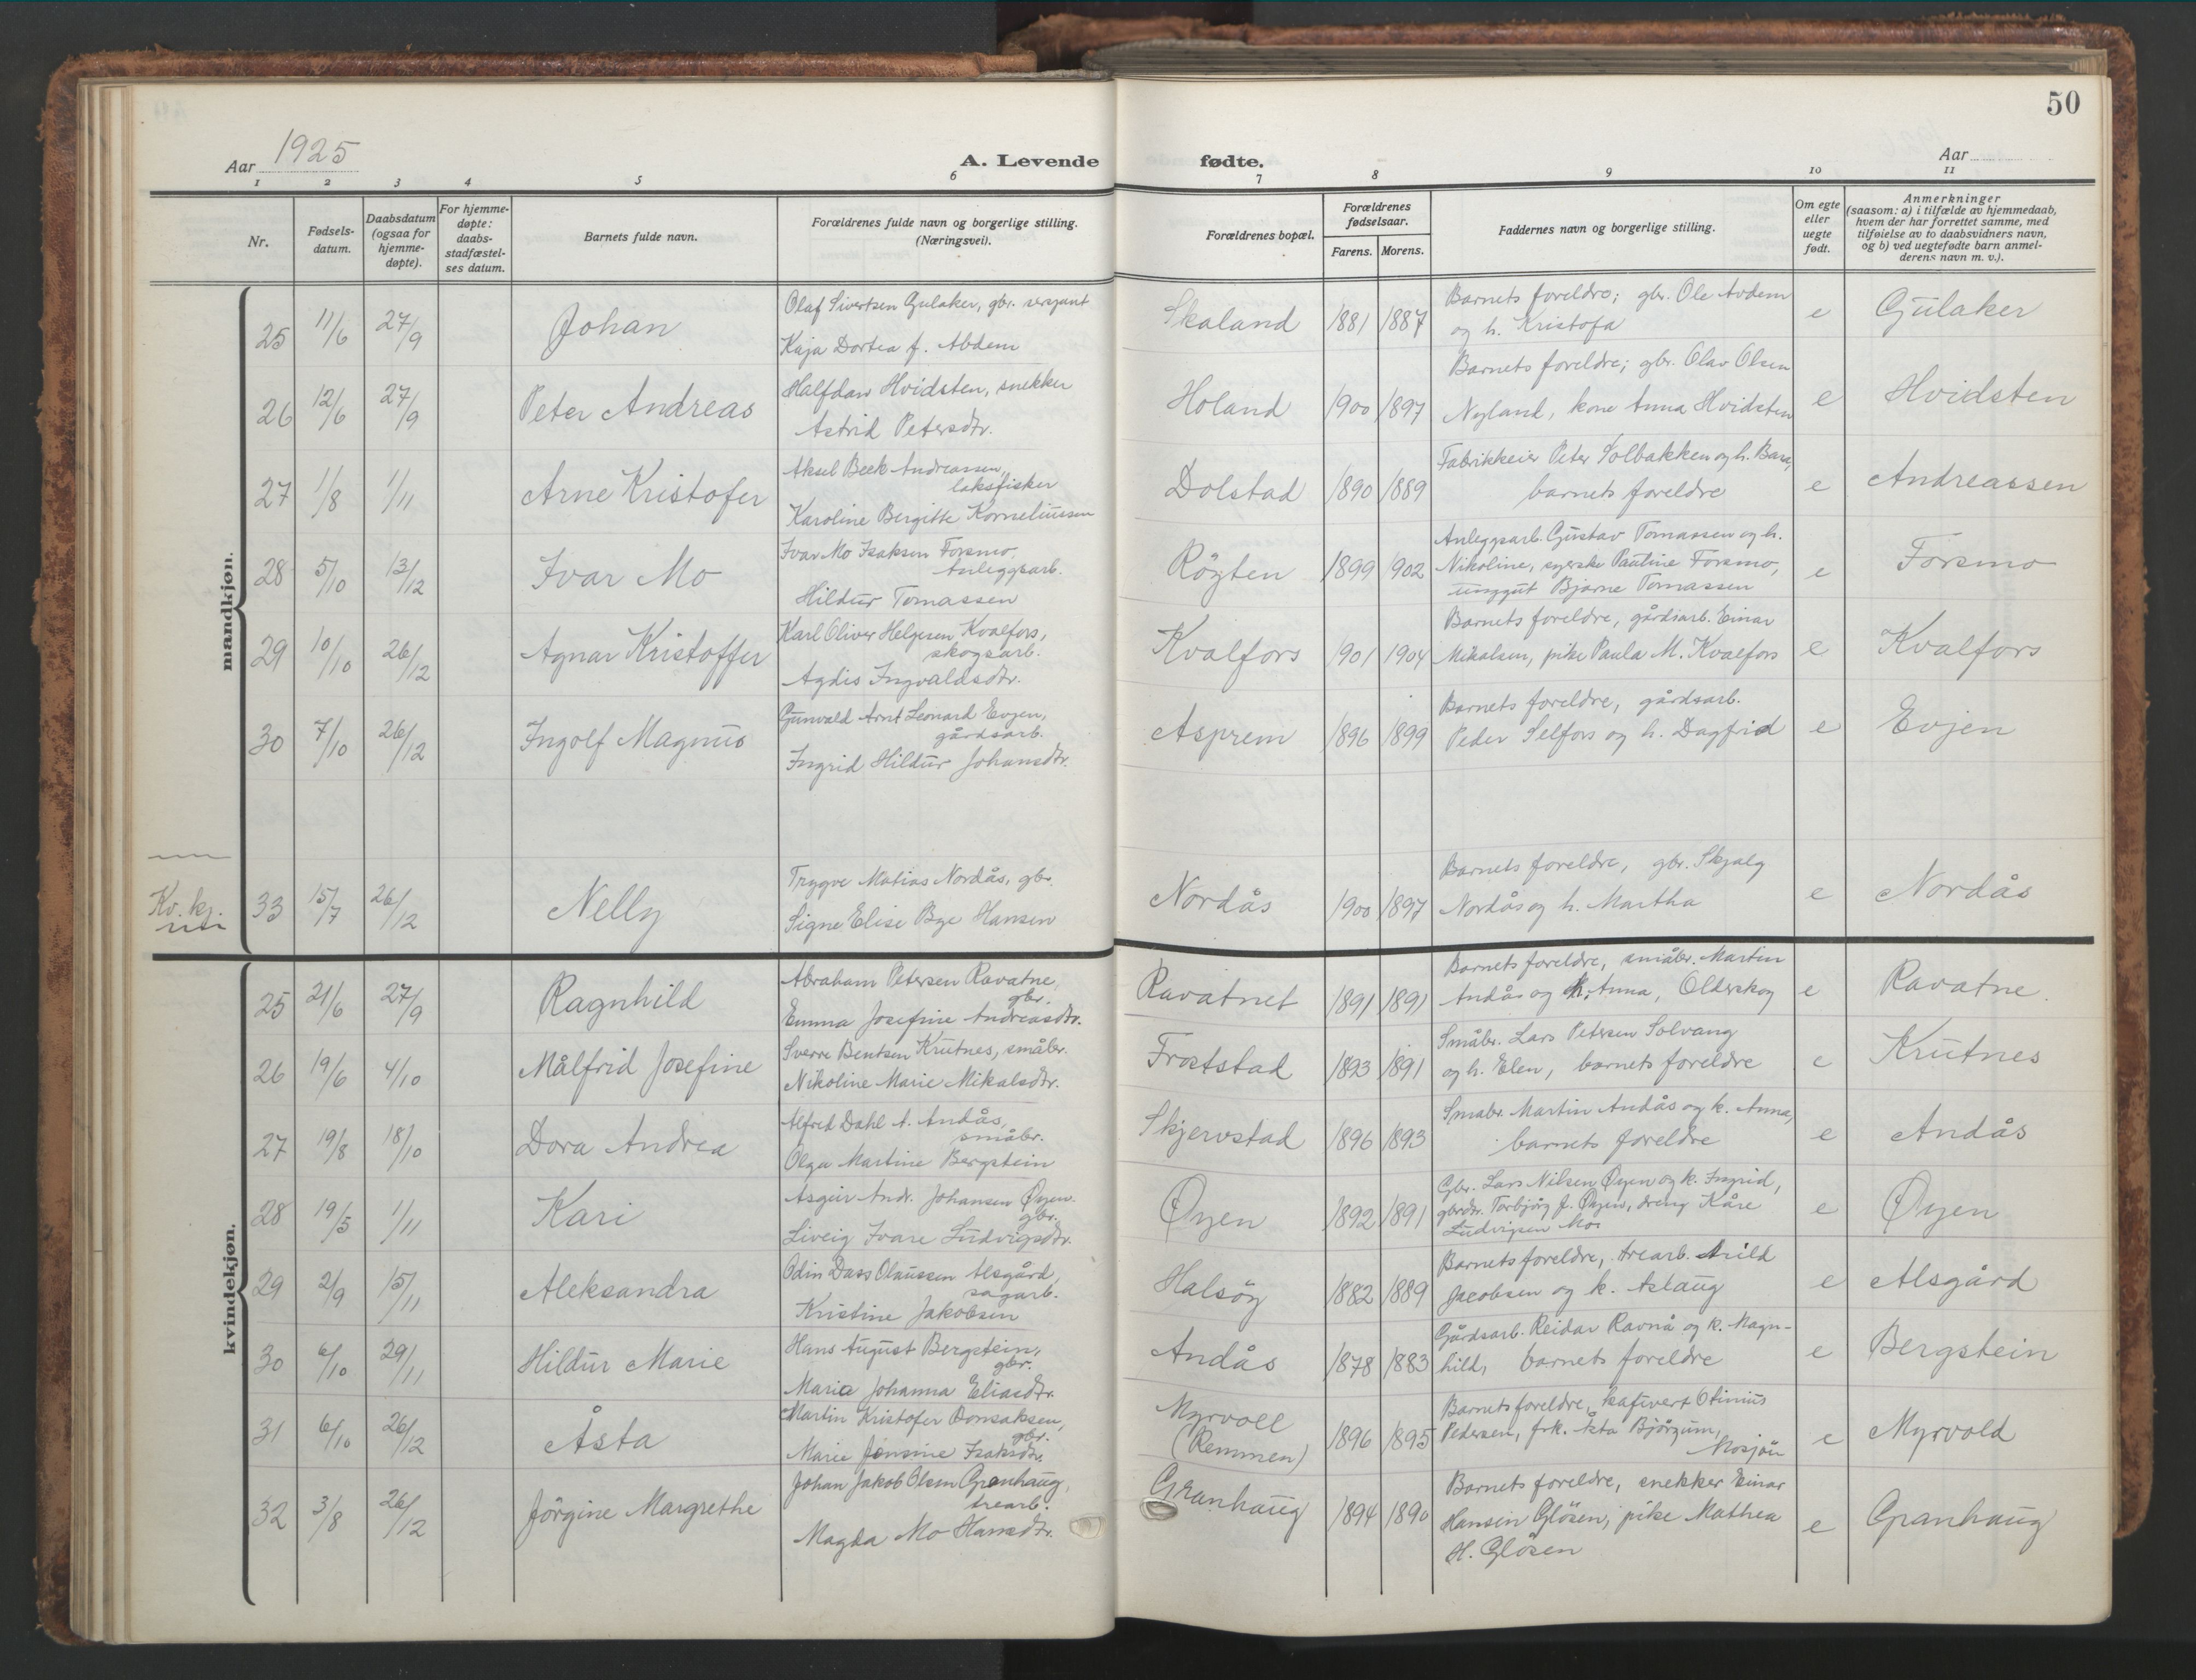 50
Aar 1925
A. Levende fødte.
Aar
1 2 3 4 5 6 7 8 9 10 11
Nr.
Fødsels-
datum.
Daabsdatum
(ogsaa for
hjemme-
døpte).
For hjemme-
døpte:
daabs-
stadfæstel-
ses datum.
Barnets fulde navn.
Forældrenes fulde navn og borgerlige stilling.
(Næringsvei).
Forældrenes bopæl.
Forældrenes
fødselsaar.
Farens. Morens.
Faddernes navn og borgerlige stilling.
Om egte
eller
uegte
født.
Anmerkninger
(saasom: a) i tilfælde av hjemmedaab,
hvem der har forrettet samme, med
tilføielse av to daabsvidners navn,
og b) ved uegtefødte barn anmel-
derens navn m. v.).
mandkjøn.
25 11/6 27/9 Johan
Olaf Sivertsen Gulaker, gbr. sersjant
Kaja Dortea f. Abdem
Skaland 1881 1887
Barnets foreldre; gbr. Ole Avdem
og h. Kristofa
e Gulaker
26 12/6 27/9 Peter Andreas
Halfdan Hvidsten, snekker
Astrid Petersdtr.
Holand 1900 1897
Barnets foreldre; gbr. Olav Olsen
Nyland, kone Anna Hvidsten
e Hvidsten
27 1/8 1/11 Arne Kristofer
Aksel Beck Andreassen,
laksfisker
Karoline Bergitte Korneliussen
Dolstad 1890 1889
Fabrikkeier Peter Solbakken og h. Bara,
barnets foreldre
e Andreassen
28 5/10 13/12 Ivar Mo
Ivar Mo Isaksen Forsmo,
Anleggsarb.
Hildur Tomassen
Röyten 1899 1902
Anleggsarb. Gustav Tomassen og h.
Nikoline, syerske Pauline Forsmo,
unggut Bjarne Tomassen
e Forsmo
29 10/10 26/12 Agnar Kristoffer
Karl Oliver Helgesen Kvalfors,
skogsarb.
Agdis Ingvaldsdtr.
Kvalfors 1901 1904
Barnets foreldre, gårdsarb. Einar
Mikalsen, pike Paula M. Kvalfors
e Kvalfors
30 7/10 26/12 Ingolf Magnus
Gunvald Arnt Leonard Evjen,
gårdsarb.
Ingrid Hildur Johansdtr.
Asprem 1896 1899
Barnets foreldre, gårdsarb.
Peder Selfors og h. Dagfrid
e Evjen
Kv. kj.
33 15/7 26/12 Nelly
Trygve Matias Nordås, gbr.
Signe Elise Bye Hansen
Nordås 1900 1897
Barnets foreldre, gbr. Skjalg
Nordås og h. Martha
e Nordås
kvindekjøn.
25 21/6 27/9 Ragnhild
Abraham Petersen Ravatne,
gbr.
Emma Josefine Andreasdtr.
Ravatnet 1891 1891
Barnets foreldre, småbr. Martin
Andås og k. Anna, Olderskog
e Ravatne.
26 19/6 4/10 Målfrid Josefine
Sverre Bentsen Krutnes, småbr.
Nikoline Marie Mikalsdtr.
Froststad 1893 1891
Småbr. Lars Petersen Solvang
og h. Elen, barnets foreldre
e Krutnes
27 19/8 18/10 Dora Andrea
Alfred Dahl A. Andås,
småbr.
Olga Martine Bergstein
Skjervstad 1896 1893
Småbr. Martin Andås og k. Anna,
barnets foreldre
e Andås
28 19/5 1/11 Kari
Asgeir Andr. Johansen Øyen.
gbr.
Liveig Ivare Ludvigsdtr.
Øyen 1892 1891
Gbr. Lars Nilsen Øyen og k. Ingrid,
gbrdtr. Torbjörg J. Øyen, dreng Kåre
Ludvigsen Mo.
e Øyen
29 2/9 15/11 Aleksandra
Odin Dass Olaussen Alsgård,
sagarb.
Kristine Jakobsen
Halsöy 1882 1889
Barnets foreldre, trearb. Arild
Jacobsen og k. Aslaug
e Alsgård
30 6/10 29/11 Hildur Marie
Hans August Bergstein,
gbr.
Maria Johanna Eliasdtr.
Andås 1878 1883
Gårdsarb. Reidar Ravnå og k. Magn-
hild, barnets foreldre
e Bergstein
31 6/10 26/12 Åsta
Martin Kristofer Jonsaksen,
gbr.
Marie Jensine Isaksdtr.
Myrvoll
(Remmen) 1896 1895
Barnets foreldre, kafévert Otinius
Pedersen, frk. Åsta Bjørgum,
Mosjöen
e Myrvold
32 3/8 26/12 Jörgine Margrethe
Johan Jakob Olsen Granhaug,
trearb.
Magda Mo Hansdtr.
Granhaug 1894 1890
Barnets foreldre, snekker Einar
Hansen Glösen, pike Mathea
H. Glösen
e Granhaug